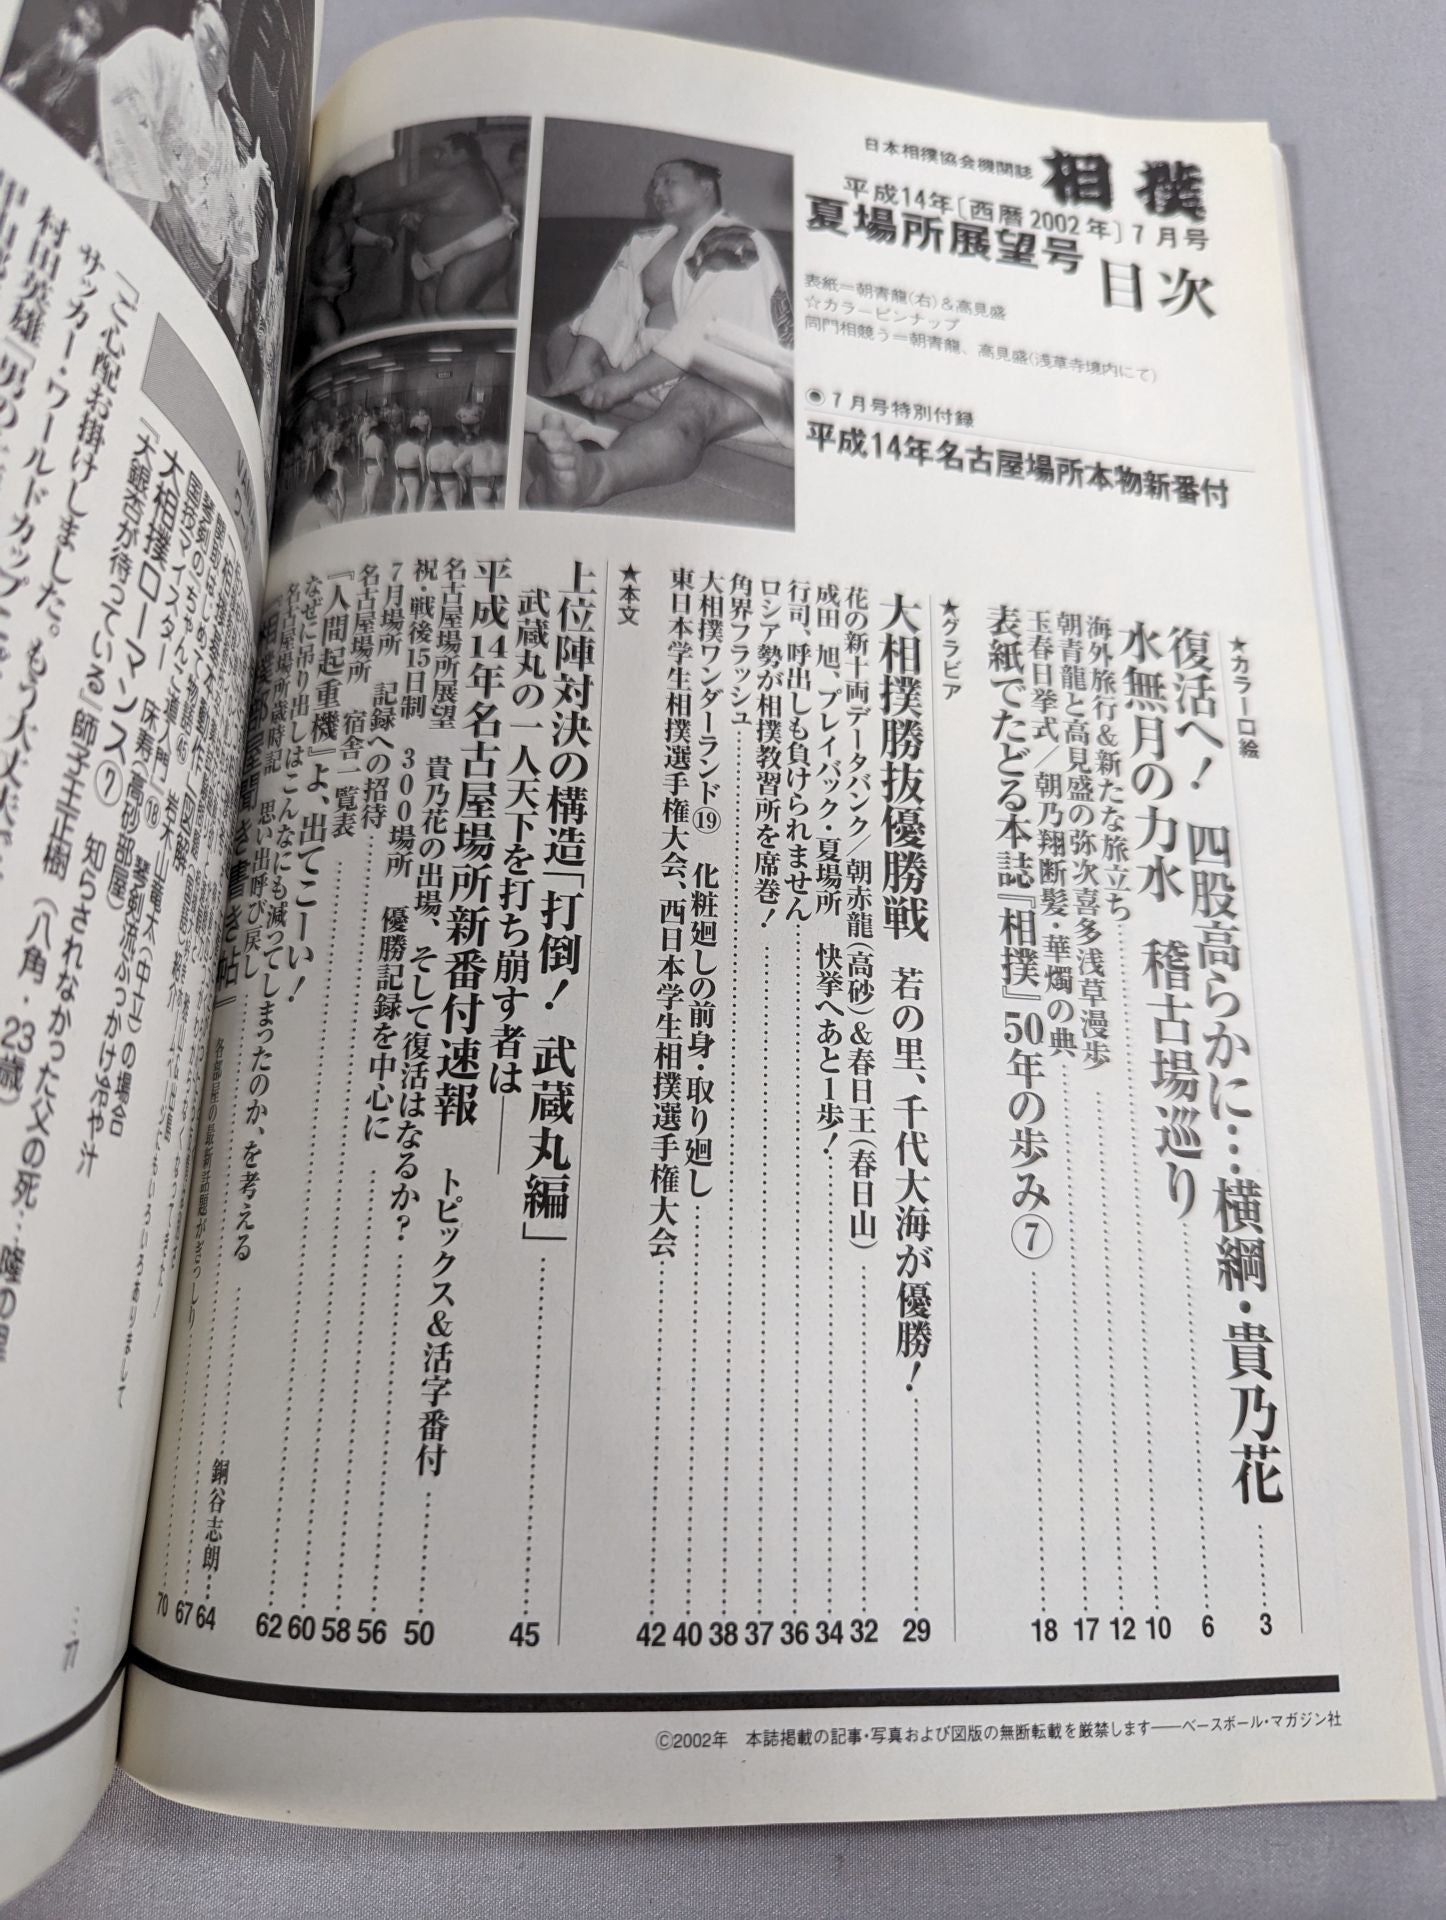 日本相撲協会機関誌
相撲
平成14年〔西暦2002年〕7月号
夏場所展望号
目次
表紙＝朝青龍(右)＆高見盛
☆カラーピンナップ
同門相競う＝朝青龍、高見盛(浅草寺境内にて)
◉7月号特別付録
平成14年名古屋場所本物新番付
★カラー口絵
復活へ！ 四股高らかに…横綱・貴乃花 3
水無月の力水 稽古場巡り 6
海外旅行＆新たな旅立ち 10
朝青龍と高見盛の弥次喜多浅草漫歩 12
玉春日挙式／朝乃翔断髪・華燭の典 17
表紙でたどる本誌『相撲』50年の歩み⑦ 18
★グラビア
大相撲勝抜優勝戦 若の里、千代大海が優勝！ 29
花の新十両データバンク／朝赤龍(高砂)＆春日王(春日山) 32
成田 旭、プレイバック・夏場所 快挙へあと1歩！ 34
行司、呼出しも負けられません 36
ロシア勢が相撲教習所を席巻！ 37
角界フラッシュ 38
大相撲ワンダーランド⑲ 化粧廻しの前身・取り廻し 40
東日本学生相撲選手権大会、西日本学生相撲選手権大会 42
★本文
上位陣対決の構造「打倒！ 武蔵丸編」 45
武蔵丸の一人天下を打ち崩す者は――
平成14年名古屋場所新番付速報 トピックス＆活字番付 50
名古屋場所展望 貴乃花の出場、そして復活はなるか？ 56
祝・戦後15日制 300場所 優勝記録を中心に
7月場所 記録への招待 58
名古屋場所 宿舎一覧表 60
『人間起重機』よ、出てこーい！
なぜに吊り出しはこんなにも減ってしまったのか、を考える 62
名古屋場所歳時記 思い出呼び戻し 銅谷志朗 64
『相撲部屋聞き書き帖』 各部屋の最新話題がぎっしり 67
70
©2002年 本誌掲載の記事・写真および図版の無断転載を厳禁します――ベースボール・マガジン社
琴剣のちゃんこ物語㊺ 琴剣流ぶっかけ冷や汁
国技マイスター 床寿(高砂部屋)の場合
大相撲ローマンス⑦ 知らされなかった父の死…
『大銀杏が待っている』師子王正樹(八角・23歳)
「ご心配お掛けしました。もう大丈夫で
サッカー・ワールドカップ
村田英雄「男の
77